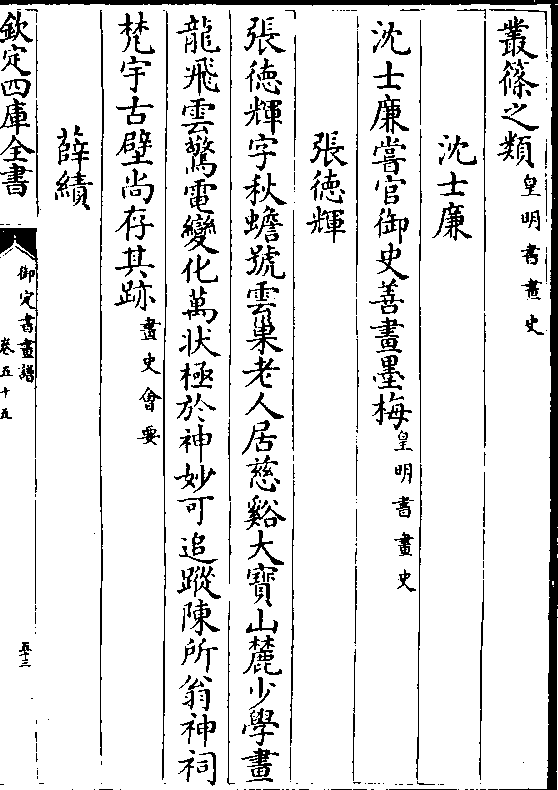 叢篠之類皇明書畫史
沈士廉
沈士廉嘗官御史善畫墨梅皇明書畫史
張徳輝
張徳輝字秋蟾號雲巢老人居慈谿大寳山麓少學畫
龍飛雲驚電變化萬狀極於神妙可追蹤陳所翁神祠
梵宇古壁尚存其跡畫史會要
薛績
欽定四庫全書
御定書畫譜
卷五十五
五十三